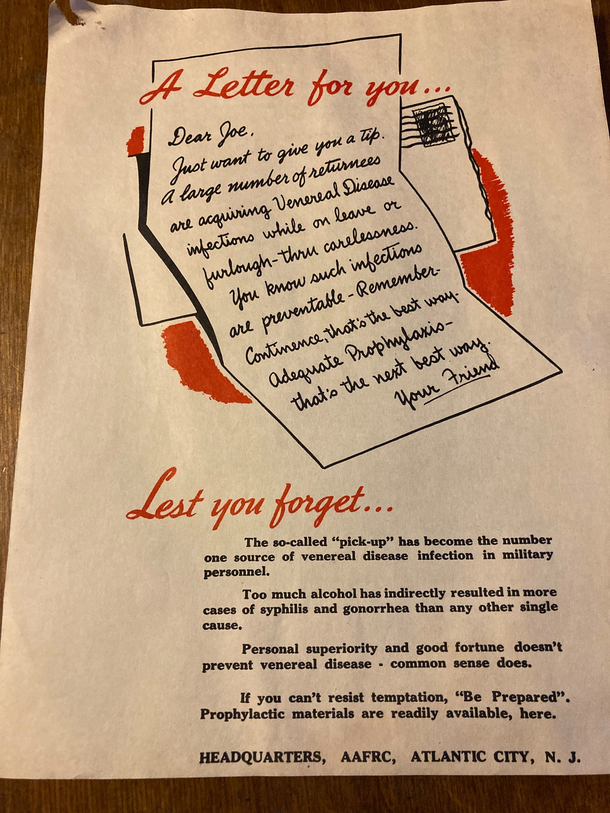 A Letter for you...
Dear Joe,
Just want to give you a tip.
A large number of returnees
are acquiring Venereal Disease
infections while on leave or
furlough-thru carelessness.
You know such infections
are preventable-Remember-
Continence, that's the best way-
Adequate Prophylaxis-
that's the next best way.
Your Friend
Lest you forget...
The so-called "pick-up" has become the number
one source of venereal disease infection in military
personnel.
Too much alcohol has indirectly resulted in more
cases of syphilis and gonorrhea than any other single
cause.
Personal superiority and good fortune doesn't
prevent venereal disease - common sense does.
If you can't resist temptation, "Be Prepared".
Prophylactic materials are readily available, here.
HEADQUARTERS, AAFRC, ATLANTIC CITY, N. J.